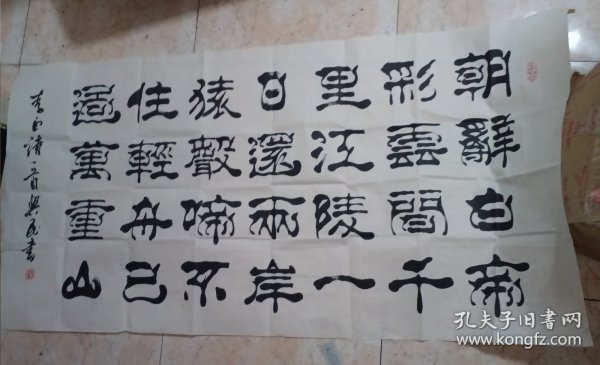 朝辭白帝
彩雲間千
里江陵一
日還兩岸
猿聲啼不
住輕舟已
過萬重山
李白詩一首興民書
孔夫子旧书网
www.kongfz.com